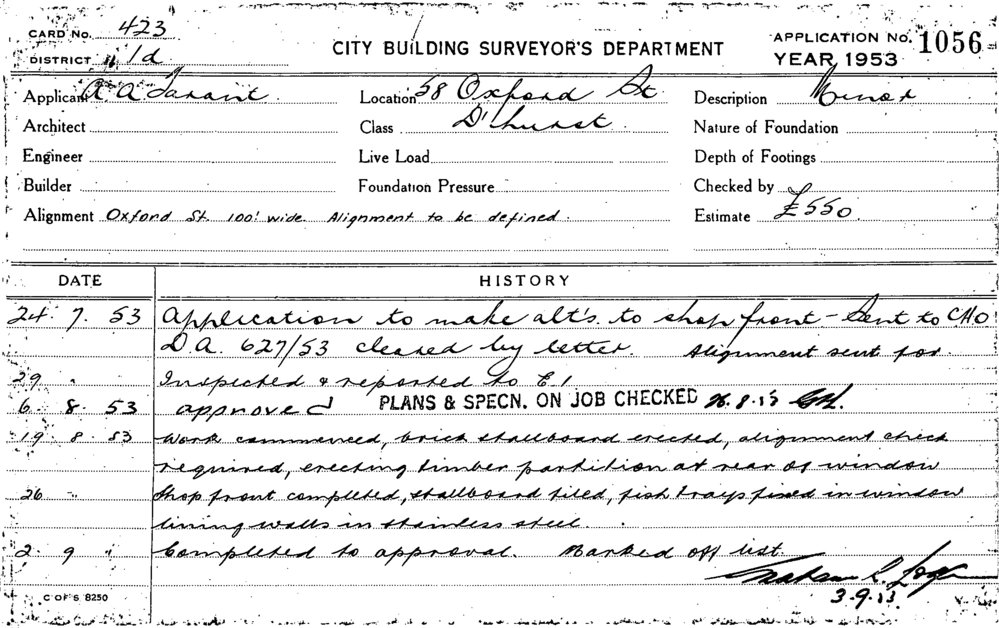 CARD No. 423
DISTRICT 1d
CITY BUILDING SURVEYOR'S DEPARTMENT
APPLICATION No. 1056
YEAR 1953
Applicant A A Tarant Location 58 Oxford St Description Minor
Architect Class D'hurst Nature of Foundation
Engineer Live Load Depth of Footings
Builder Foundation Pressure Checked by
Alignment Oxford St. 100' wide. Alignment to be defined. Estimate £550
DATE HISTORY
24. 7. 53 Application to make alt's. to shop front - Sent to CHO
D.A. 627/53 cleared by letter. Alignment sent for.
29 " Inspected & reported to E1
6. 8. 53 approved PLANS & SPECN. ON JOB CHECKED 26.8.53
19. 8. 53 Work commenced, brick stallboard erected, alignment check
required, erecting timber partition at rear of window
26 " Shop front completed, stallboard tiled, fish trays fixed in window
lining walls in stainless steel.
2. 9 " Completed to approval. Marked off list
3.9.53
C OF S 8250